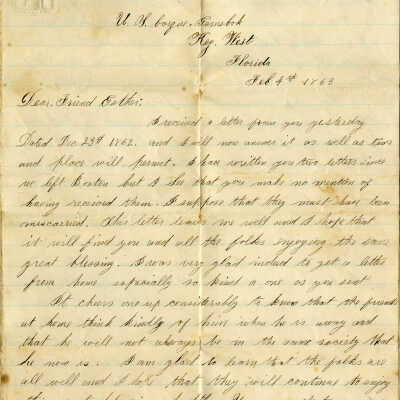 U. S. Gorges Farnsbok
Key West
Florida
Feb. 4th 1863
Dear Friend Esther:
I received a letter from you yesterday
Dated Dec 23d 1862. and I will now answer it as well as time
and place will permit. I have written you two letters since
we left Boston but I see that you make no mention of
having received them. I suppose that they must have been
miscarried. This letter leaves me well and I hope that
it will find you and all the folks enjoying the same
great blessing. I was very glad indeed to get a letter
from home especially so kind a one as you sent
It cheers one up considerably to know that the friends
at home think kindly of him when he is away and
that he will not always be in the same society that
he now is. I am glad to learn that the folks are
all well and I hope that they will continue to enjoy